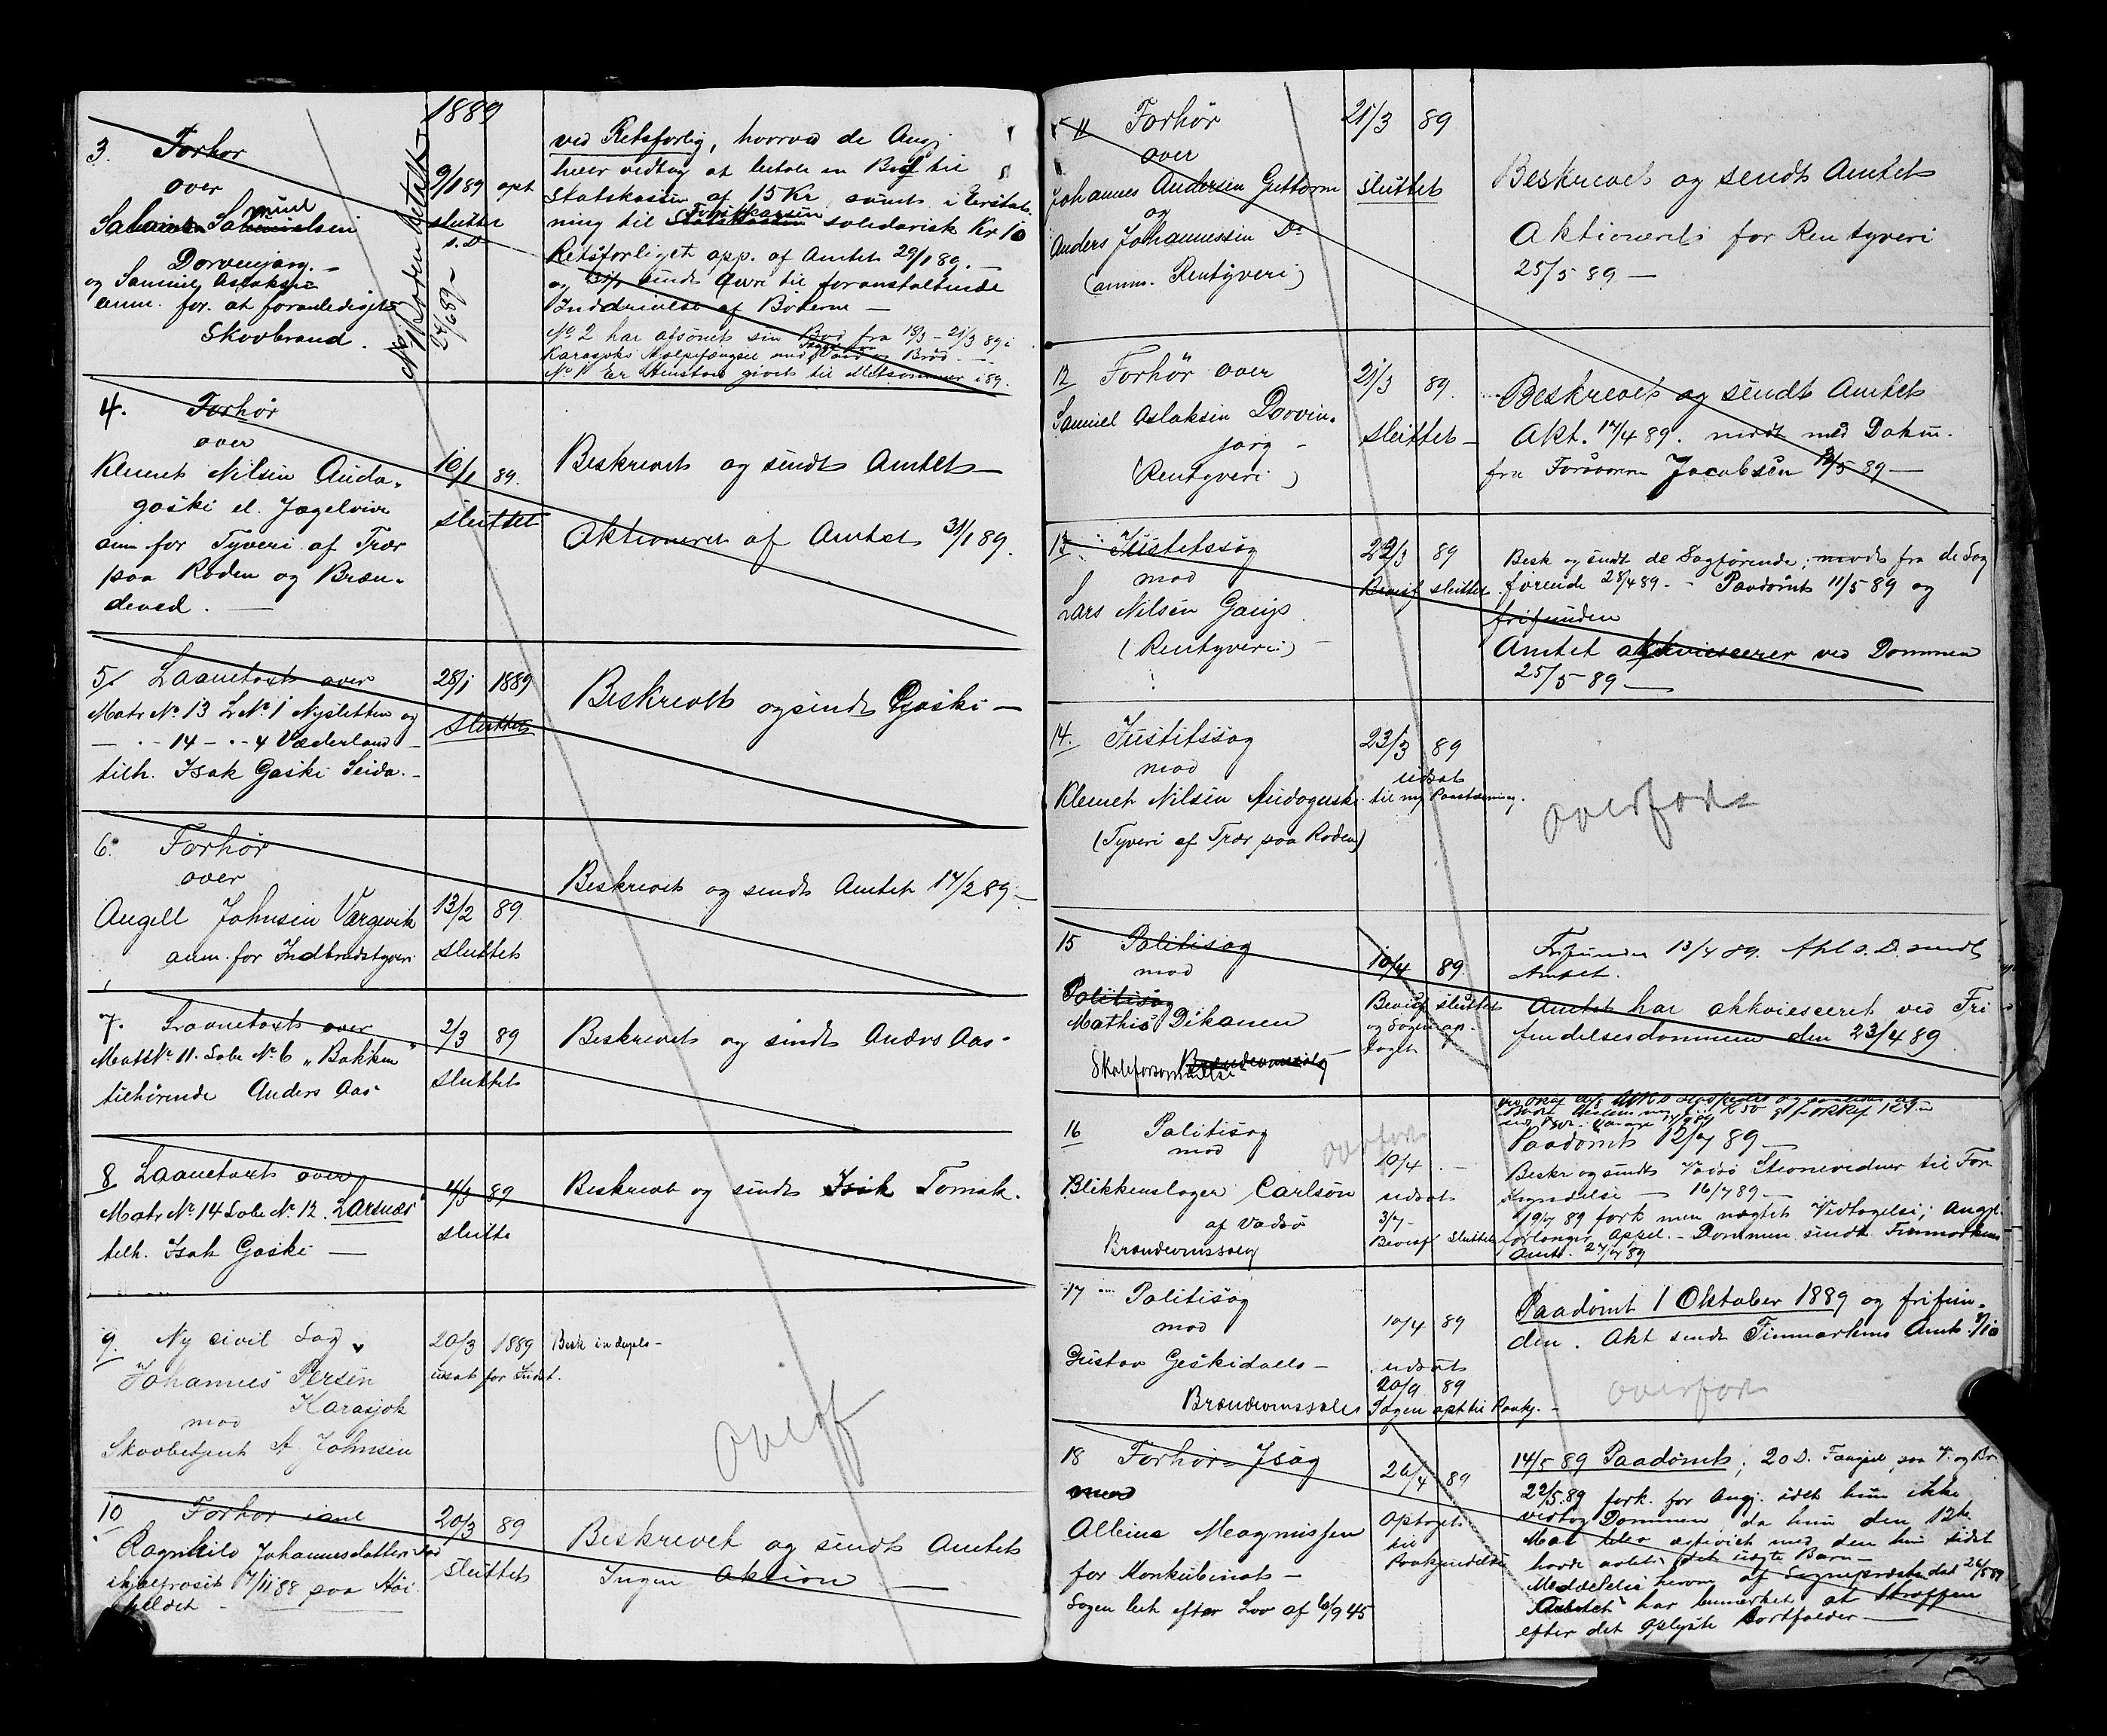 1889
3. Forhør
over
Samuelsen
Dorvenjarg. –
og Samuel Aslaksen
anm. for at foranlediget
Skovbrand.
9/1 89 opt
sluttet
s. D
betalt
24/6 89 –
ved Retsforlig, hvorved de Ang.
hver vedtog at betale en Bod til
Statskassen af 15 Kr samt i Erstat-
ning til Forstkassen solidarisk Kr 10
Retsforliget app. af Amtet 29/1 89. –
og sendt til foranstaltende
Inddrivelse af Bøderne –
No 2 har afsonet sin Bod fra 18/3 – 21/3 89 i
Karasjoks Hjelpefængsel med Vand og Brød. –
No 1 Er Henstand givet til Midtsommer i 89.
4. Forhør
over
Klemet Nilsen Auda-
goski el. Jægelvive
anm for Tyveri af Trær
paa Roden og Bræn-
deved. –
10/1 89.
sluttet
Beskrevet og sendt Amtet –
Aktioneret af Amtet 31/1 89.
5/ Laanetaxt over
Matr No 13 L No 1 Nysletten og
– · – 14 – · – 4 Væderland –
tilh. Isak Gaski Seida. –
28/1 1889
sluttet
Beskrevet og sendt Gaski –
6. Forhør
over
Angell Johnsen Vargevik
anm. for Indbrudstyveri
13/2 89.
sluttet
Beskrevet og sendt Amtet 14/2 89 –
7. Laanetaxt over
Matr No 11. Løbe No 6 "Bakken"
tilhørende Anders Aas
2/3 89
sluttet
Beskrevet og sendt Anders Aas –
8 Laanetaxt over
Matr No 14 Løbe No 12. Larsnes"
tilh. Isak Gaski –
4/3 89
slutte
Beskrevet og sendt Isik Tornsk.
9. Ny civil Sag
Johannes Persen
Karasjok
mod
Skovbetjent A Johnsen
20/3 1889
usat for Indst.
Besk in duplo –
overf
10 Forhør i anl
Ragnhild Johannesdatter
ihjelfrosit 7/11 88 paa Høi-
fjeldet –
20/3 89
sluttet
Beskrevet og sendt Amtet
Ingen Aktion –
11 Forhør
over
Johannes Andersen Guttorm
og
Anders Johannessen Do
(anm. Rentyveri)
21/3 89
sluttet
Beskrevet og sendt Amtet
Aktioneret for Rentyveri
25/5 89 –
12 Forhør over
Samuel Aslaksen Dorvin-
jarg –
(Rentyveri)
21/3 89.
sluttet –
Beskrevet og sendt Amtet
Akt. 17/4 89. modt med Dokm.
fra Forsvarer Jacobsen 12/5 89 –
13 Justitssag
mod
Lars Nilsen Gaup
(Rentyveri) –
22/3 89
Bevisf sluttet
Besk og sendt de Sagførende; modt fra de Sag
førende 28/4 89. – Paadømt 11/5 89 og
frifunden
Amtet akkviescerer ved Dommen
25/5 89 –
14. Justitssag
mod
Klemet Nilsen Audagoski
(Tyveri af Trær paa Roden)
23/3 89
udsat
til ny Paastævning.
overført
15 Politisag
mod
Politisag
Mathis Dikanen
Skoleforsømmelse Brændevinssalg
10/4 89
Bevisf sluttet
og Sagen op-
taget
Frifunden 13/4 89. Akt s. D. sendt
Amtet.
Amtet har akkviesceret ved Fri
findelsesdommen den 23/4 89
16 Politisag
mod
Blikkenslager Carlson
af Vadsø
Brændevinssalg
overført
10/4 –
udsat
3/7 –
Bevisf sluttet
Paadømt 12/7 89 –
Beskr og sendt Vadsø Stevnevidner til For-
kyndelse – 16/7 89 –
19/7 89 fork men nægtet Vedtagelse; Angl.
forlanger Appel. – Dommen sendt Finmarkens
Amt. 27/7 89
17 Politisag
mod
Gustav Geskidalls –
Brændevinssalg
10/4 89
udsat
20/9 89
Sagen opt til Paakj. –
Paadømt 1 Oktober 1889 og frifun-
den. Akt sendt Finmarkens Amt. 9/10
overført
18 Forhørs Isag
mod
Albine Magnussen
for Konkubinat –
Sagen beh efter Lov af 6/9 45
26/4 89
Optaget
til
Paakjendelse
14/5 89 Paadømt; 20 D. Fængsel paa V. og Br.
22/5. 89 fork. for Ang. idet hun ikke
vedtog Dommen da hun den 12te
Mai blev egteviet med den hun sidst
havde avlet det uægte Barn –
Meddelelse herom af Sognepræsten dat 26/5 89
Amtet har bemærket at Straffen
efter det oplyste bortfalder –